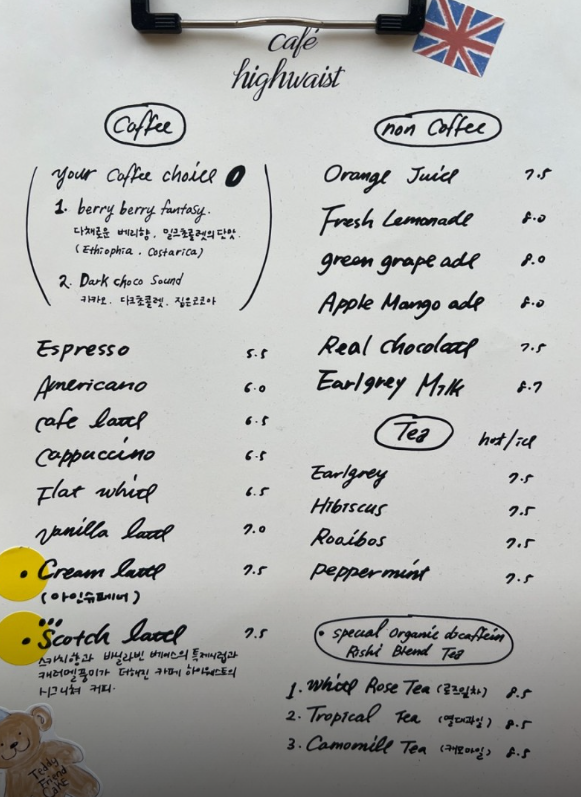 café
highwaist
Coffee
your Coffee choice
1. berry berry fantasy.
다채로운 베리향. 밀크초콜렛의 단맛.
(Ethiophia. Costarica)
2. Dark choco Sound
카카오. 다크초콜렛. 짙은코코아
Espresso 5.5
Americano 6.0
cafe latte 6.5
cappuccino 6.5
Flat white 6.5
vanilla latte 7.0
• Cream latte 7.5
(아인슈페너)
• Scotch latte 7.5
스카치향과 바닐라빈 베이스의 특제시럽과
캐러멜풍미가 더해진 카페 하이웨스트의
시그니쳐 커피.
Teddy
Friend
CAKE
non Coffee
Orange Juice 7.5
Fresh Lemonade 8.0
green grape ade 8.0
Apple Mango ade 8.0
Real chocolate 7.5
Earlgrey Milk 8.7
Tea hot/ice
Earlgrey 7.5
Hibiscus 7.5
Rooibos 7.5
peppermint 7.5
• special Organic decaffein
Rishi Blend Tea
1. White Rose Tea (로즈잎차) 8.5
2. Tropical Tea (열대과일) 8.5
3. Camomill Tea (캐모마일) 8.5